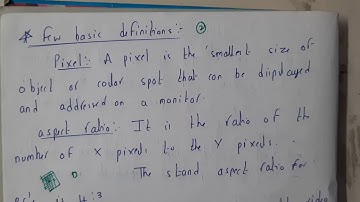 * Few basic definitions:- 2
Pixel:- A pixel is the smallest size of
object or color spot that can be displayed
and addressed on a monitor.
aspect ratio:- It is the ratio of the
number of X pixels to the Y pixels.
D. The stand aspect ratio for
is 4:3 video